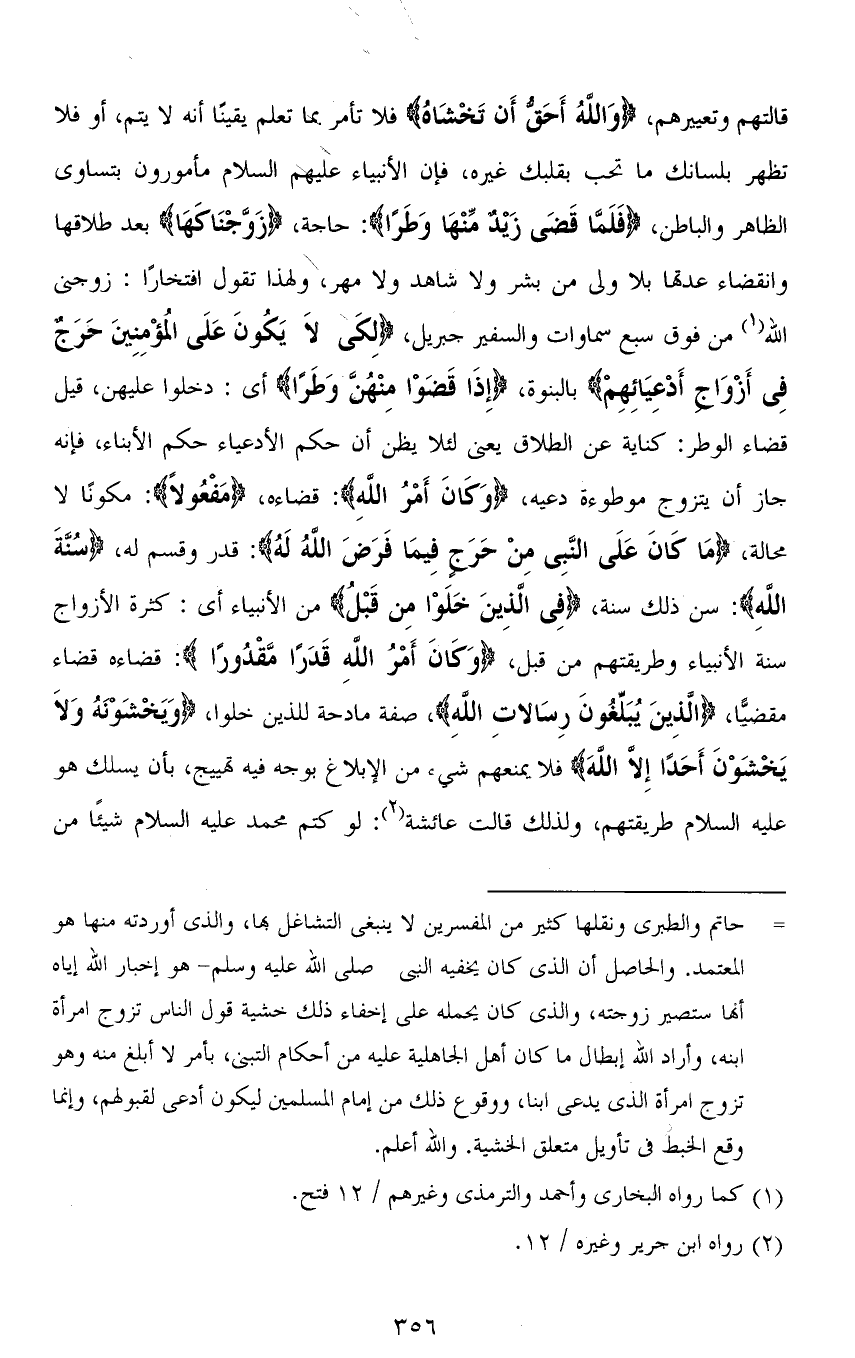 قالتهم وتعييرهم، ﴿وَاللَّهُ أَحَقُّ أَن تَخْشَاهُ﴾ فلا تأمر بما تعلم يقينًا أنه لا يتم، أو فلا
تظهر بلسانك ما تحب بقلبك غيره، فإن الأنبياء عليهم السلام مأمورون بتساوى
الظاهر والباطن، ﴿فَلَمَّا قَضَى زَيْدٌ مِّنْهَا وَطَرًا﴾: حاجة، ﴿زَوَّجْنَاكَهَا﴾ بعد طلاقها
وانقضاء عدتها بلا ولى من بشر ولا شاهد ولا مهر، ولهذا تقول افتخارًا : زوجنى
الله(١) من فوق سبع سماوات والسفير جبريل، ﴿لِكَىْ لاَ يَكُونَ عَلَى الْمُؤْمِنِينَ حَرَجٌ
فِى أَزْوَاجِ أَدْعِيَائِهِمْ﴾ بالبنوة، ﴿إِذَا قَضَوْا مِنْهُنَّ وَطَرًا﴾ أى : دخلوا عليهن، قيل
قضاء الوطر: كناية عن الطلاق يعنى لئلا يظن أن حكم الأدعياء حكم الأبناء، فإنه
جاز أن يتزوج موطوءة دعيه، ﴿وَكَانَ أَمْرُ اللَّهِ﴾: قضاءه، ﴿مَفْعُولاً﴾: مكونًا لا
محالة، ﴿مَا كَانَ عَلَى النَّبِى مِنْ حَرَجٍ فِيمَا فَرَضَ اللَّهُ لَهُ﴾: قدر وقسم له، ﴿سُنَّةَ
اللَّهِ﴾: سن ذلك سنة، ﴿فِى الَّذِينَ خَلَوْا مِن قَبْلُ﴾ من الأنبياء أى : كثرة الأزواج
سنة الأنبياء وطريقتهم من قبل، ﴿وَكَانَ أَمْرُ اللَّهِ قَدَرًا مَّقْدُورًا ﴾: قضاءه قضاء
مقضيًّا، ﴿الَّذِينَ يُبَلِّغُونَ رِسَالاتِ اللَّهِ﴾، صفة مادحة للذين خلوا، ﴿وَيَخْشَوْنَهُ وَلاَ
يَخْشَوْنَ أَحَدًا إِلاَّ اللَّهَ﴾ فلا يمنعهم شيء من الإبلاغ بوجه فيه تهييج، بأن يسلك هو
عليه السلام طريقتهم، ولذلك قالت عائشة(٢): لو كتم محمد عليه السلام شيئًا من
= حاتم والطبرى ونقلها كثير من المفسرين لا ينبغى التشاغل بها، والذى أوردته منها هو
المعتمد. والحاصل أن الذى كان يخفيه النبى صلى الله عليه وسلم- هو إخبار الله إياه
أنها ستصير زوجته، والذى كان يحمله على إخفاء ذلك خشية قول الناس تزوج امرأة
ابنه، وأراد الله إبطال ما كان أهل الجاهلية عليه من أحكام التبنى، بأمر لا أبلغ منه وهو
تزوج امرأة الذى يدعى ابنا، ووقوع ذلك من إمام المسلمين ليكون أدعى لقبولهم، وإنما
وقع الخبط فى تأويل متعلق الخشية. والله أعلم.
(١) كما رواه البخارى وأحمد والترمذى وغيرهم / ١٢ فتح.
(٢) رواه ابن جرير وغيره / ١٢.
٣٥٦